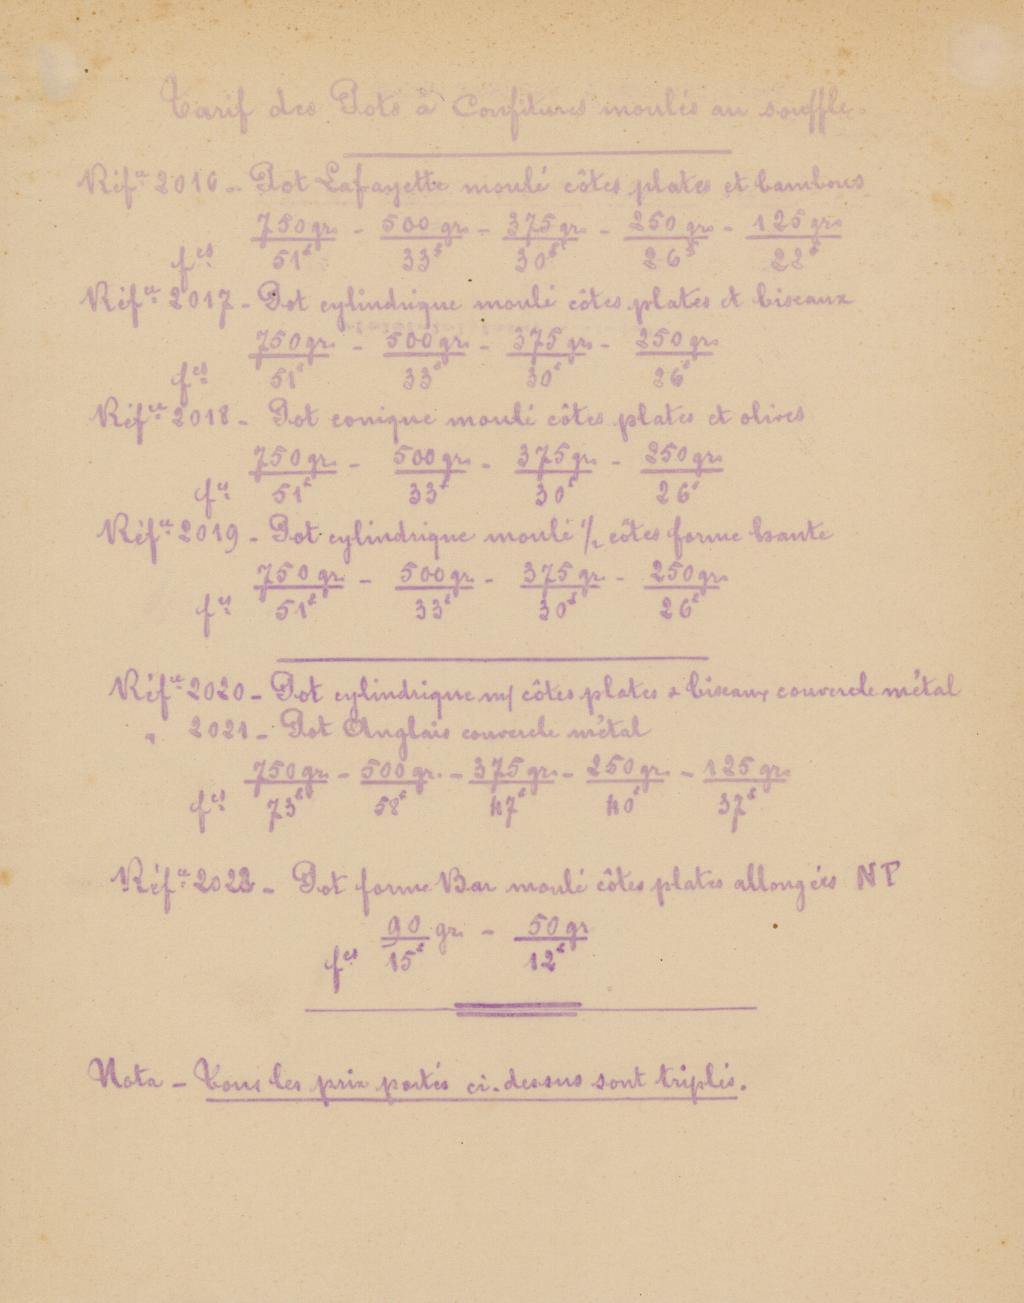 Tarif des Pots à Confitures moulés au souffle.
Réf.ce 2016 - Pot Lafayette moulé côtes plates et bambous
750 gr. - 500 gr. - 375 gr. - 250 gr. - 125 gr.
fcs 51£ 33£ 30£ 26£ 22£
Réf.ce 2017 - Pot cylindrique moulé côtes plates et biseaux
750 gr. - 500 gr. - 375 gr. - 250 gr.
fcs 51£ 33£ 30£ 26£
Réf.ce 2018 - Pot conique moulé côtes plates et olives
750 gr. - 500 gr. - 375 gr. - 250 gr.
fcs 51£ 33£ 30£ 26£
Réf.ce 2019 - Pot cylindrique moulé ½ côtes forme haute
750 gr. - 500 gr. - 375 gr. - 250 gr.
fcs 51£ 33£ 30£ 26£
Réf.ce 2020 - Pot cylindrique m/ côtes plates & biseaux couvercle métal
" 2021 - Pot Anglais couvercle métal
750 gr. - 500 gr. - 375 gr. - 250 gr. - 125 gr.
fcs 73£ 58£ 47£ 40£ 37£
Réf.ce 2022 - Pot forme Bar moulé côtes plates allongées NT
90 gr. - 50 gr
fcs 15£ 12£
Nota - Tous les prix portés ci-dessus sont triplés.